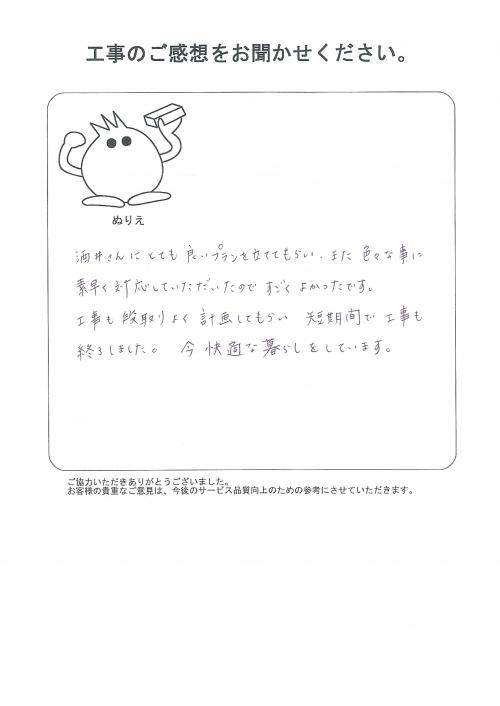 工事のご感想をお聞かせください。
ぬりえ
酒井さんにとても良いプランを立ててもらい、また色々な事に
素早く対応していただいたので すごくよかったです。
工事も段取りよく計画してもらい 短期間で工事も
終りしました。 今快適な暮らしをしています。
ご協力いただきありがとうございました。
お客様の貴重なご意見は、今後のサービス品質向上のための参考にさせていただきます。